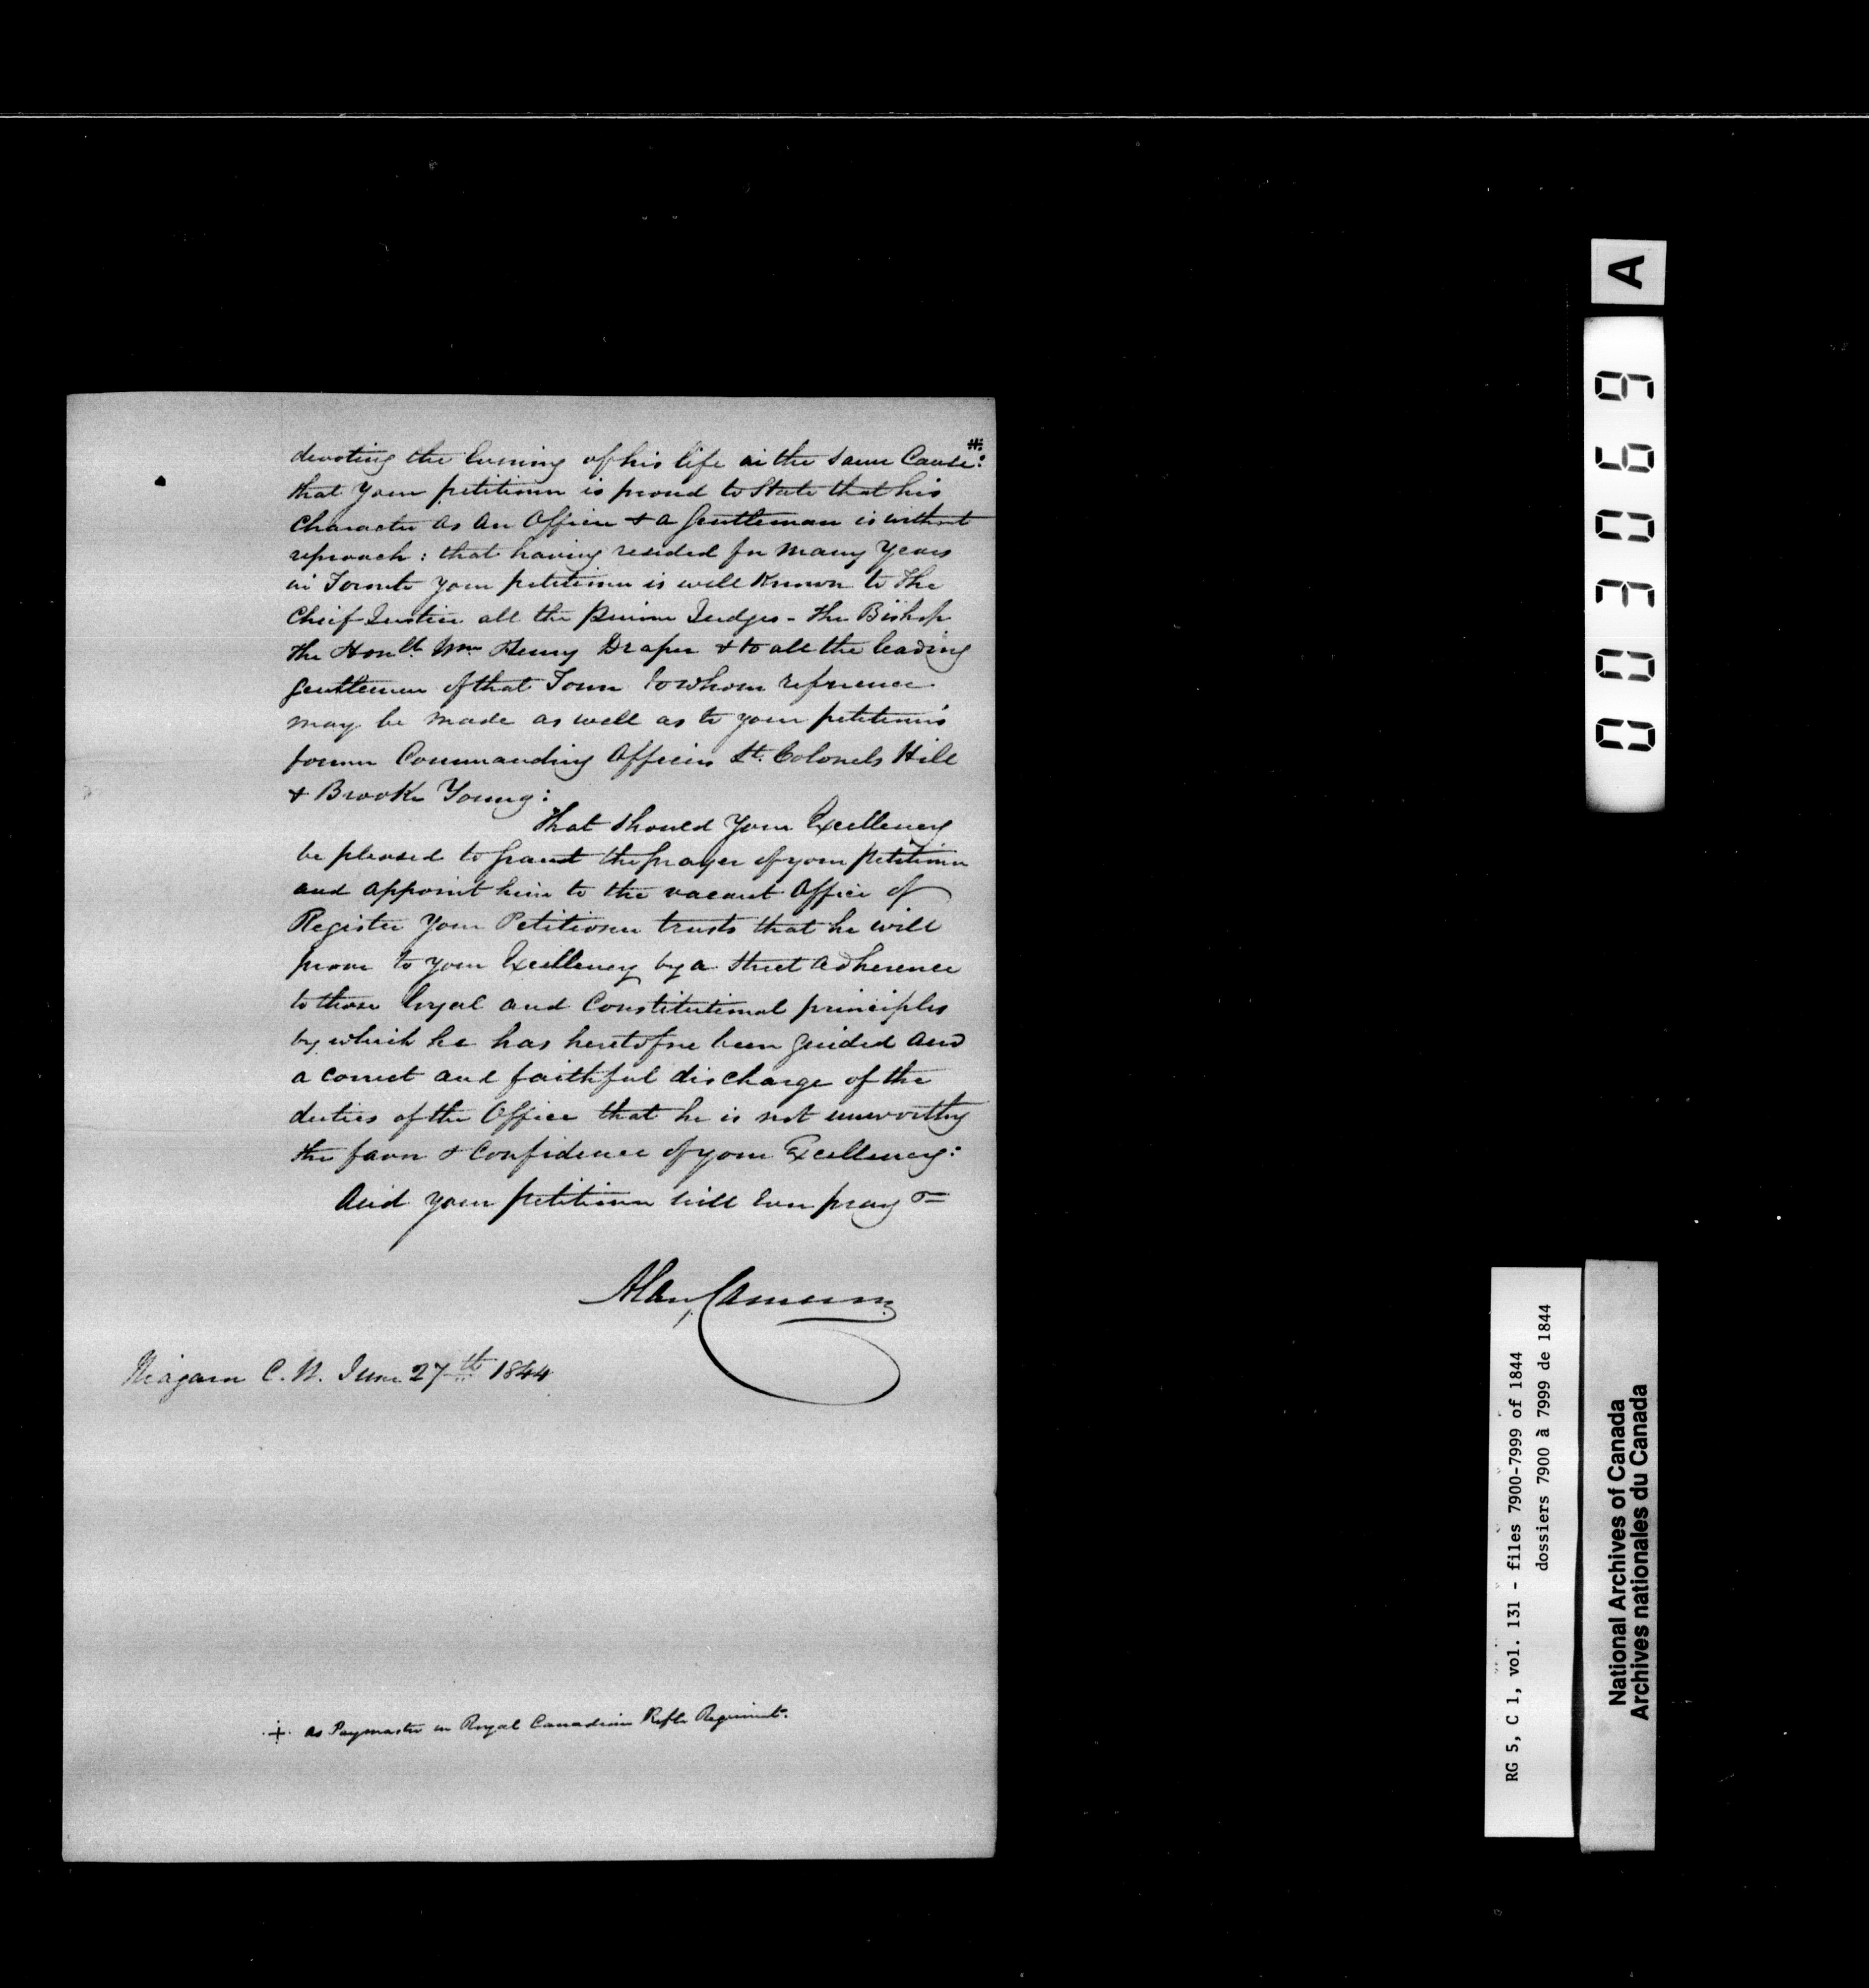 devoting the Evening of his life in the same Cause #:
that your petitioner is proud to State that his
Character as an Officer & a Gentleman is without
reproach : that having resided for many Years
in Toronto your petitioner is well Known to the
Chief Justice all the Puisne Judges - the Bishop
the Honble Wm Henry Draper & to all the leading
Gentlemen of that Town to whom reference
may be made as well as to your petitioner's
former Commanding Officers Lt. Colonels Hill
& Brooke Young :
That should Your Excellency
be pleased to grant the prayer of your petitioner
and appoint him to the vacant Office of
Register Your Petitioner trusts that he will
prove to your Excellency by a strict adherence
to those loyal and Constitutional principles
by which he has heretofore been guided and
a correct and faithful discharge of the
duties of the Office that he is not unworthy
the favor & Confidence of your Excellency :
And your petitioner will ever pray &c
Alan Cameron
Niagara C. W. June 27th 1844
+ as Paymaster in Royal Canadian Rifle Regiment.
A
003069
RG 5, C 1, vol. 131 - files 7900-7999 of 1844
dossiers 7900 à 7999 de 1844
National Archives of Canada
Archives nationales du Canada